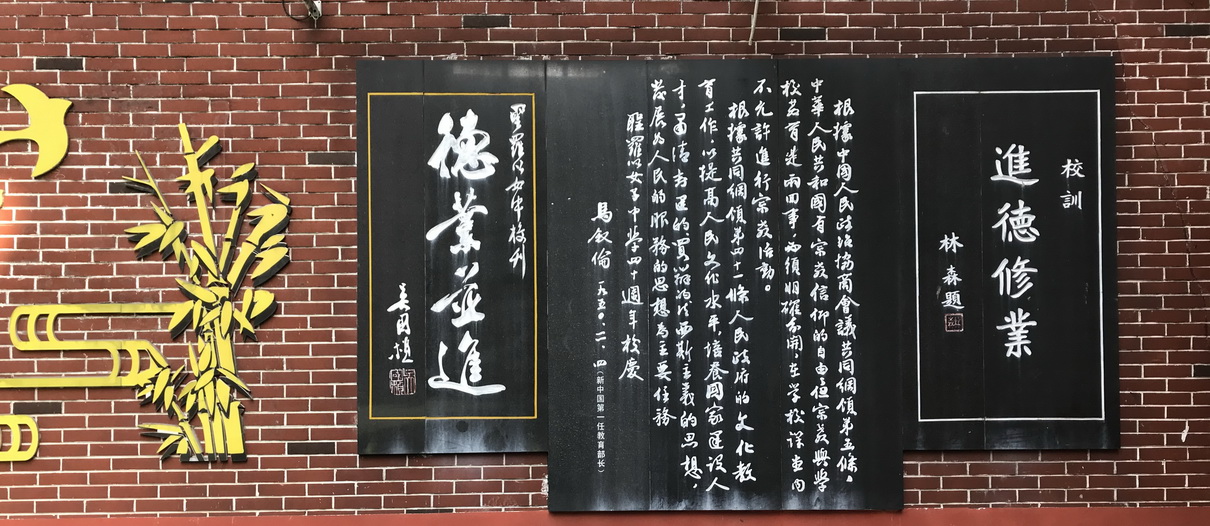 校訓
進德修業
林森題
根據中國人民政治協商會議共同綱領第五條。
中華人民共和國有宗教信仰的自由但宗教與學
校教育是兩回事，必須明確分開，在学校課堂内
不允許進行宗教活動。
根據共同綱領第四十一條人民政府的文化教
育工作，以提高人民文化水平，培養國家建设人
才，肅清封建的買辦的法西斯主義的思想，
發展為人民的服務的思想為主要任務
聖羅以女子中学四十週年校慶
馬叙倫 一九五〇、二、四（新中国第一任教育部长）
聖羅以女中校刊
德業並進